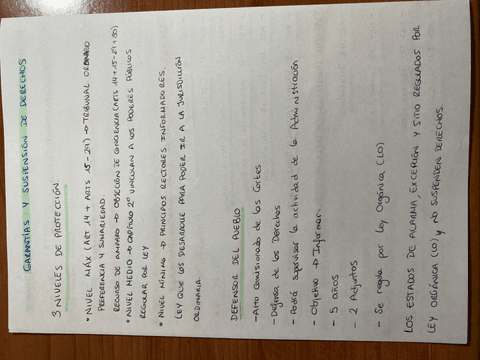 GARANTÍAS Y SUSPENSIÓN DE DERECHOS
3 NIVELES DE PROTECCIÓN:
• NIVEL MÁX (ART 14 + ARTS 15-29) → TRIBUNAL ORDINARIO
PREFERENCIA Y SUMARIEDAD.
RECURSO DE AMPARO → OBJECIÓN DE CONCIENCIA (ARTS 14+15-29+30)
• NIVEL MEDIO → CAPÍTULO 2º VINCULAN A LOS PODERES PÚBLICOS
REGULAR POR LEY
• NIVEL MÍNIMO → PRINCIPIOS RECTORES INFORMADORES.
LEY QUE LOS DESARROLLE PARA PODER IR A LA JURISDICCIÓN
ORDINARIA.
DEFENSOR DEL PUEBLO
- Alto Comisionado de las Cortes
- Defensa de los Derechos
- Podrá supervisar la actividad de la Administración
- Objetivo → Informar.
- 5 años
- 2 Adjuntos
- Se regula por Ley Orgánica (LO)
LOS ESTADOS DE ALARMA, EXCEPCIÓN Y SITIO REGULADOS POR
LEY ORGÁNICA (LO) y NO SUSPENDEN DERECHOS.